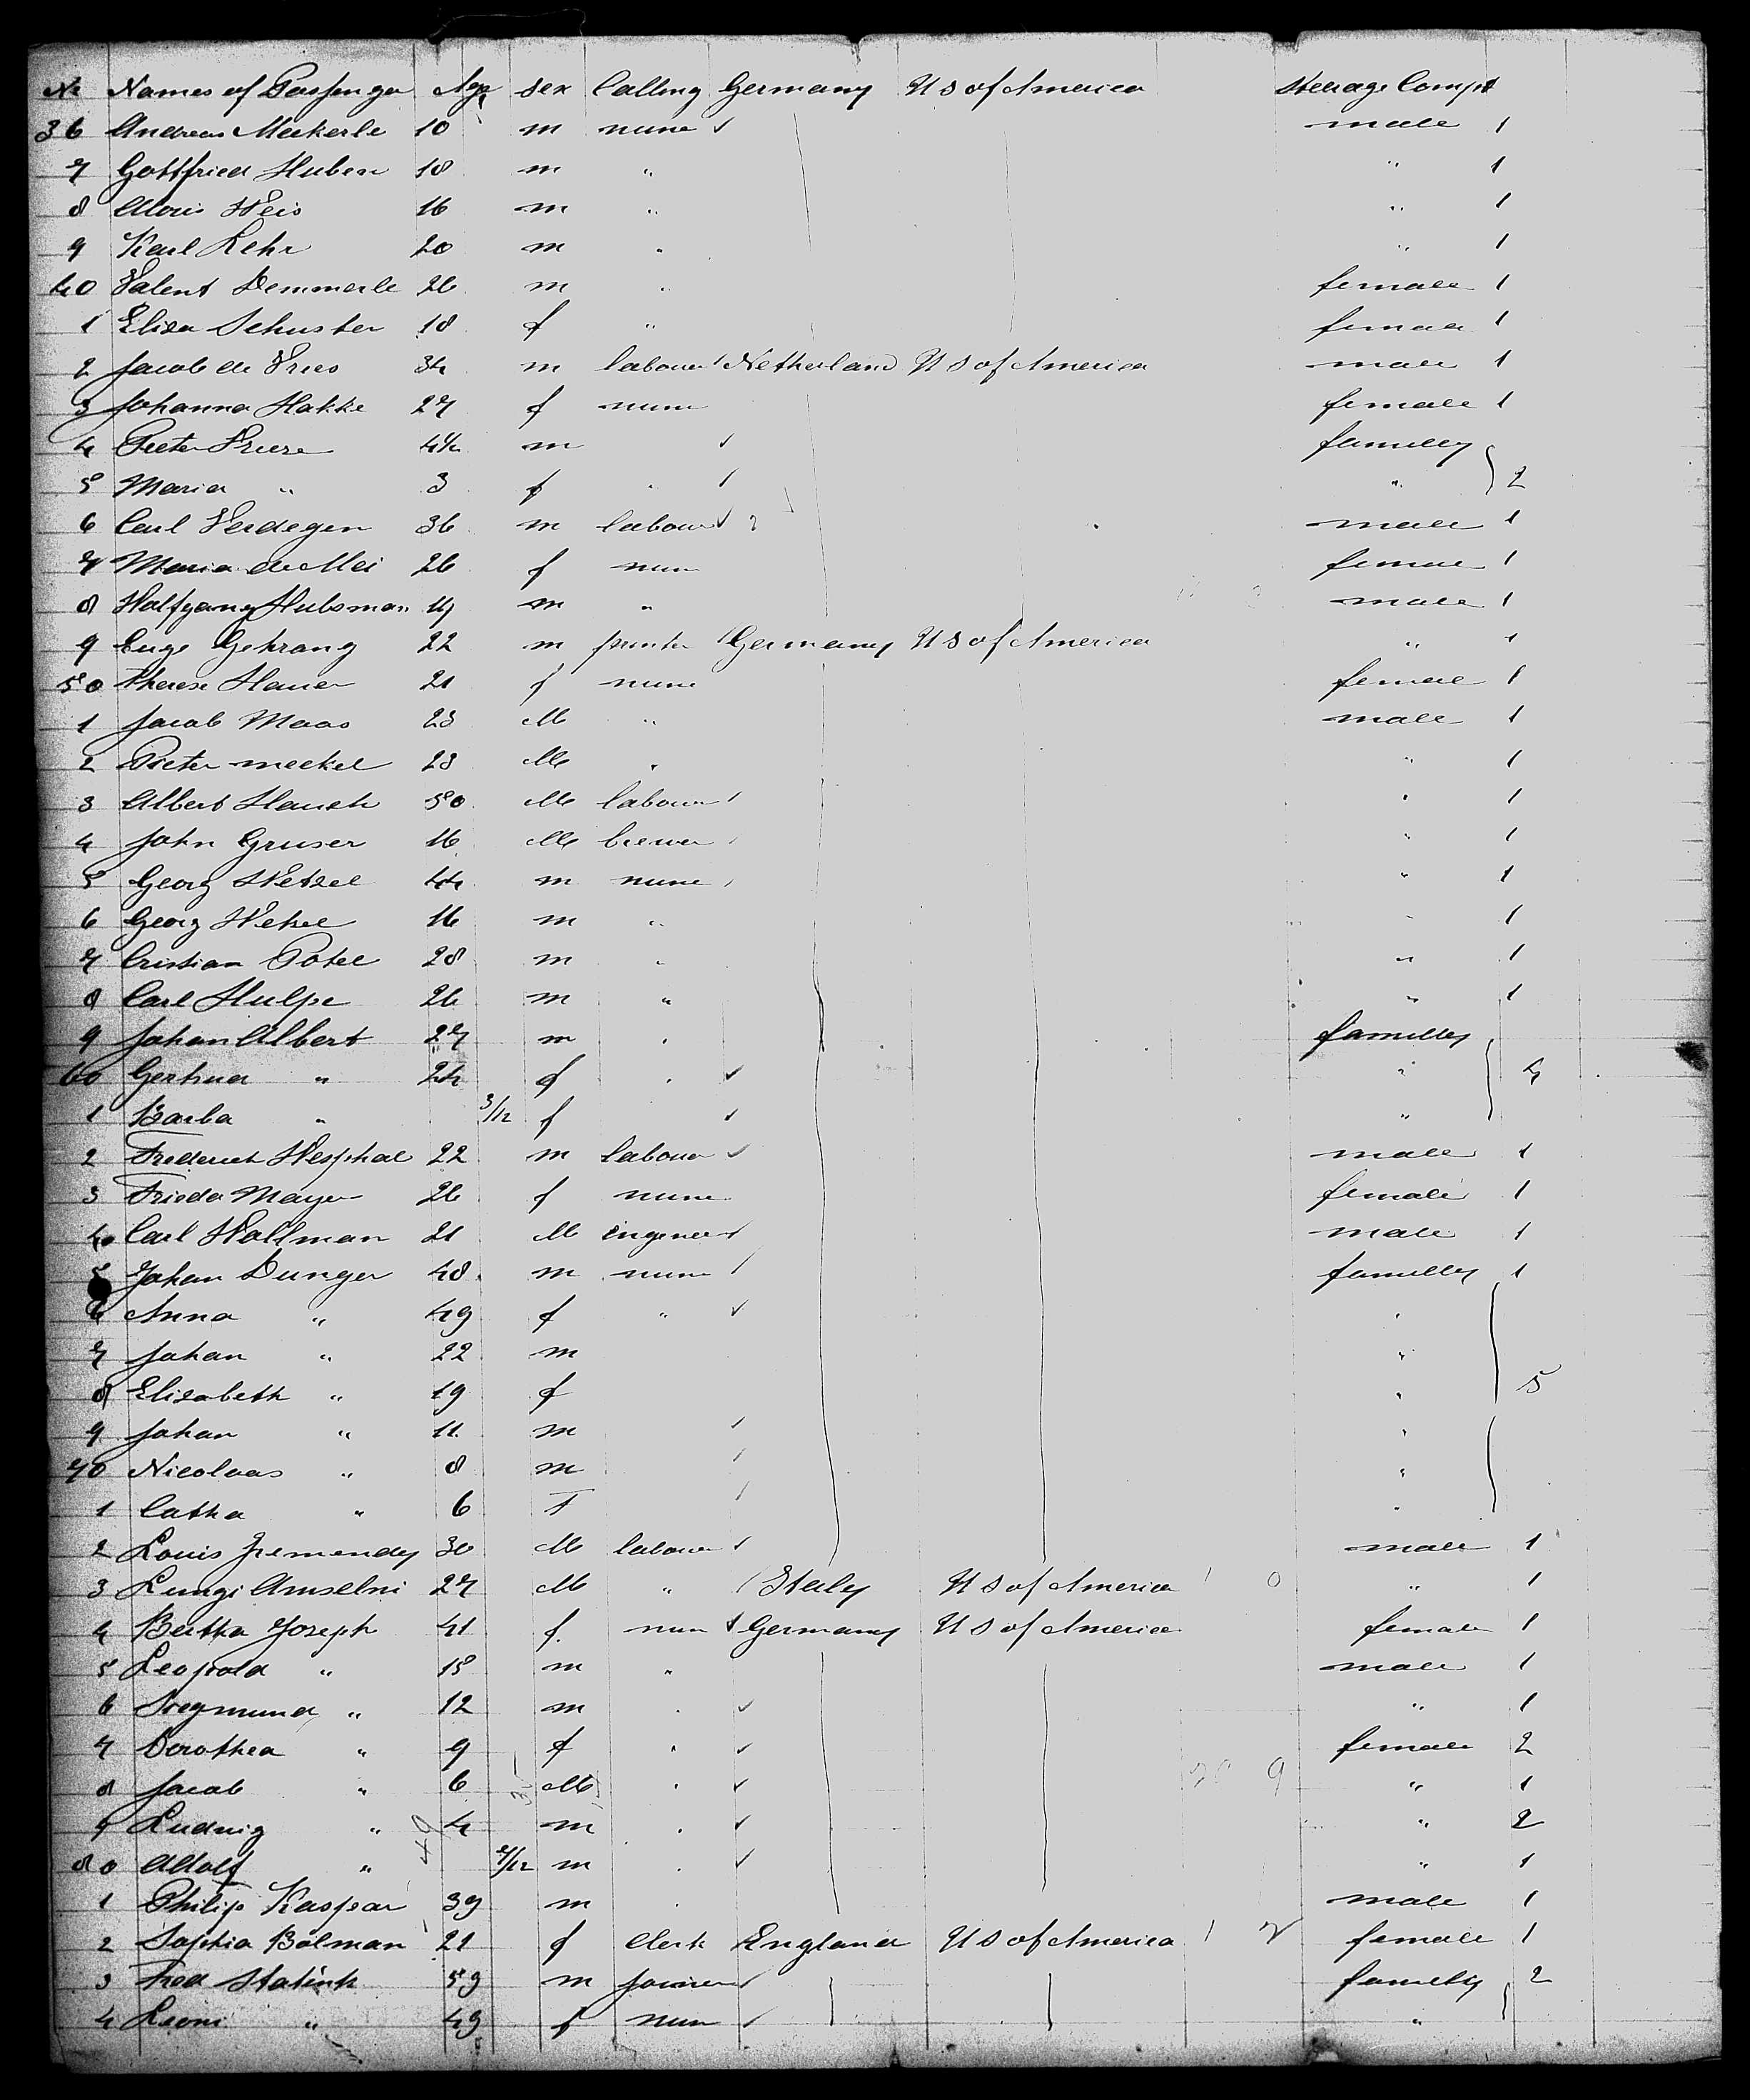 No Names of Passenger Age sex Calling Germany US of America Steerage Compt
36 Andreas Meckerle 10 m none male 1
7 Gottfried Huben 18 m " " 1
8 Alois Weis 16 m " " 1
9 Karl Lehr 20 m " " 1
40 Valent Demmerle 26 m " female 1
1 Eliza Schuster 18 f " female 1
2 Jacob de Vries 34 m labour Netherland US of America male 1
3 Johanna Hakke 27 f none female 1
4 Pieter 4½ m familly
5 Maria " 3 f " " 2
6 Carl Verdegen 36 m labour male 1
7 Maria de Mei 26 f none female 1
8 Wolfgang Hulsman 19 m " male 1
9 Gehrang 22 m printer Germany US of America " 1
50 Therese Hauer 21 f none female 1
1 Jacob Maas 23 M " male 1
2 Pieter meckel 23 M " " 1
3 Albert Hauch 50 M labour " 1
4 John Gruser 16 M brewer " 1
5 Georg Wetzel 44 m none " 1
6 Georg 16 m " " 1
7 Cristian Potel 28 m " " 1
8 Carl Hulpe 26 m " " 1
9 Johan Albert 27 m " familly
60 Gertrud " 24 f " " 4
1 Barba " 3/12 f "
2 Frederich Wesphal 22 m labour male 1
3 Frieda Mayer 26 f none female 1
4 Carl Wallman 21 M engeneer male 1
5 Johan Dunger 48 m none familly 1
6 Anna " 49 f " "
7 Johan " 22 m "
8 Elisabeth " 19 f " 5
9 Johan " 11 m "
70 Nicolaas " 8 m "
1 Catha " 6 F "
2 Louis 30 M labour male 1
3 Lungi Amselni 27 M " Italy US of America 1 0 " 1
4 Bertha Joseph 41 f. none Germany US of America female 1
5 Leopold " 15 m " male 1
6 Siegmund " 12 m " " 1
7 Dorothea " 9 f " female 2
8 Jacob " 6 M " 20 9 " 1
9 Ludwig " 4 m " " 2
80 Adolf " 7/12 m " " 1
1 Philip Kaspar 39 m " male 1
2 Sophia Bolman 21 f Clerk England US of America 1 2 female 1
3 Fred Statink 59 m joiner family 2
4 Leoni " 49 f none "